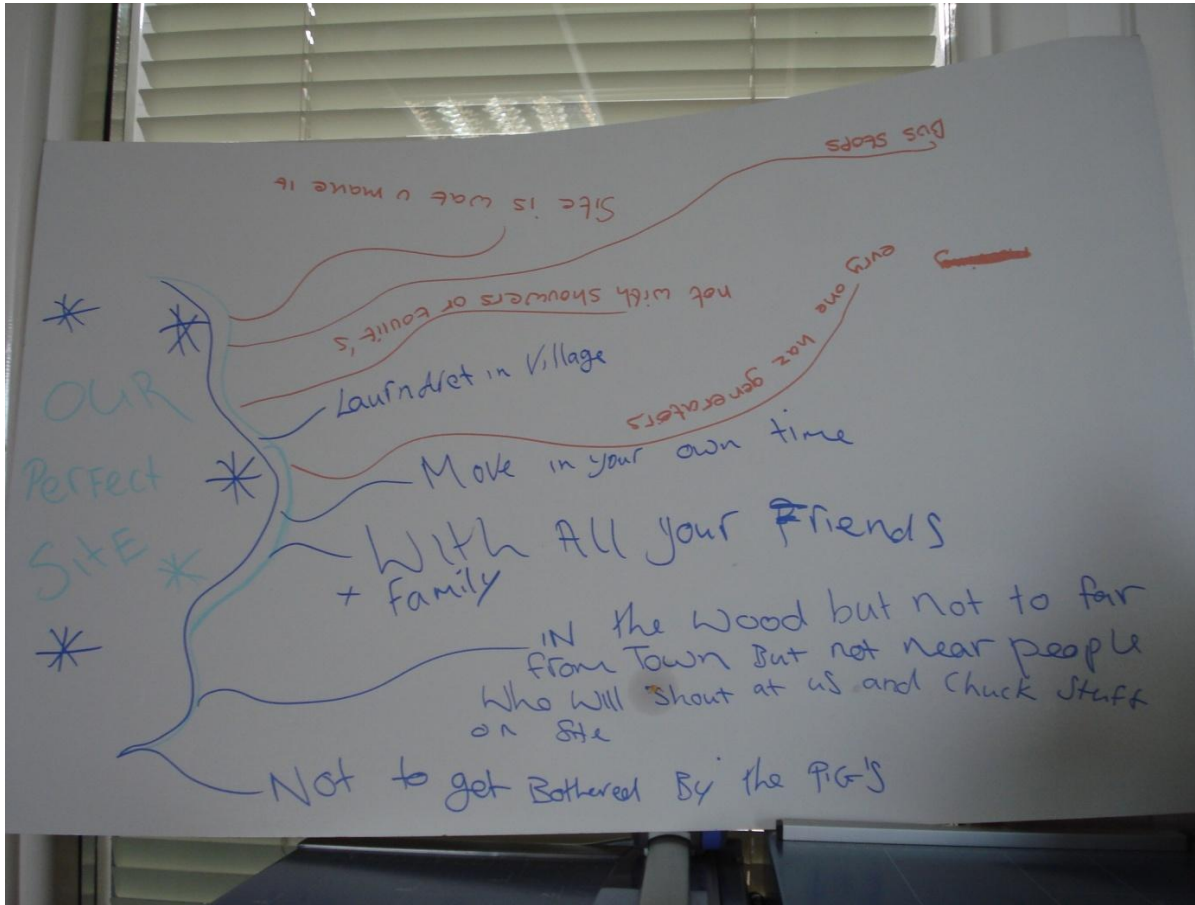 OUR
Perfect
SitE
Bus stops
Site is wat u make it
not with showers or touit's
evry one haz generators
Laurndret in Village
Move in your own time
With All your Friends
+ Family
IN the Wood but not to far
from Town But not near people
Who Will shout at us and Chuck Stuff
on Site
Not to get Bothered By the PiG'S